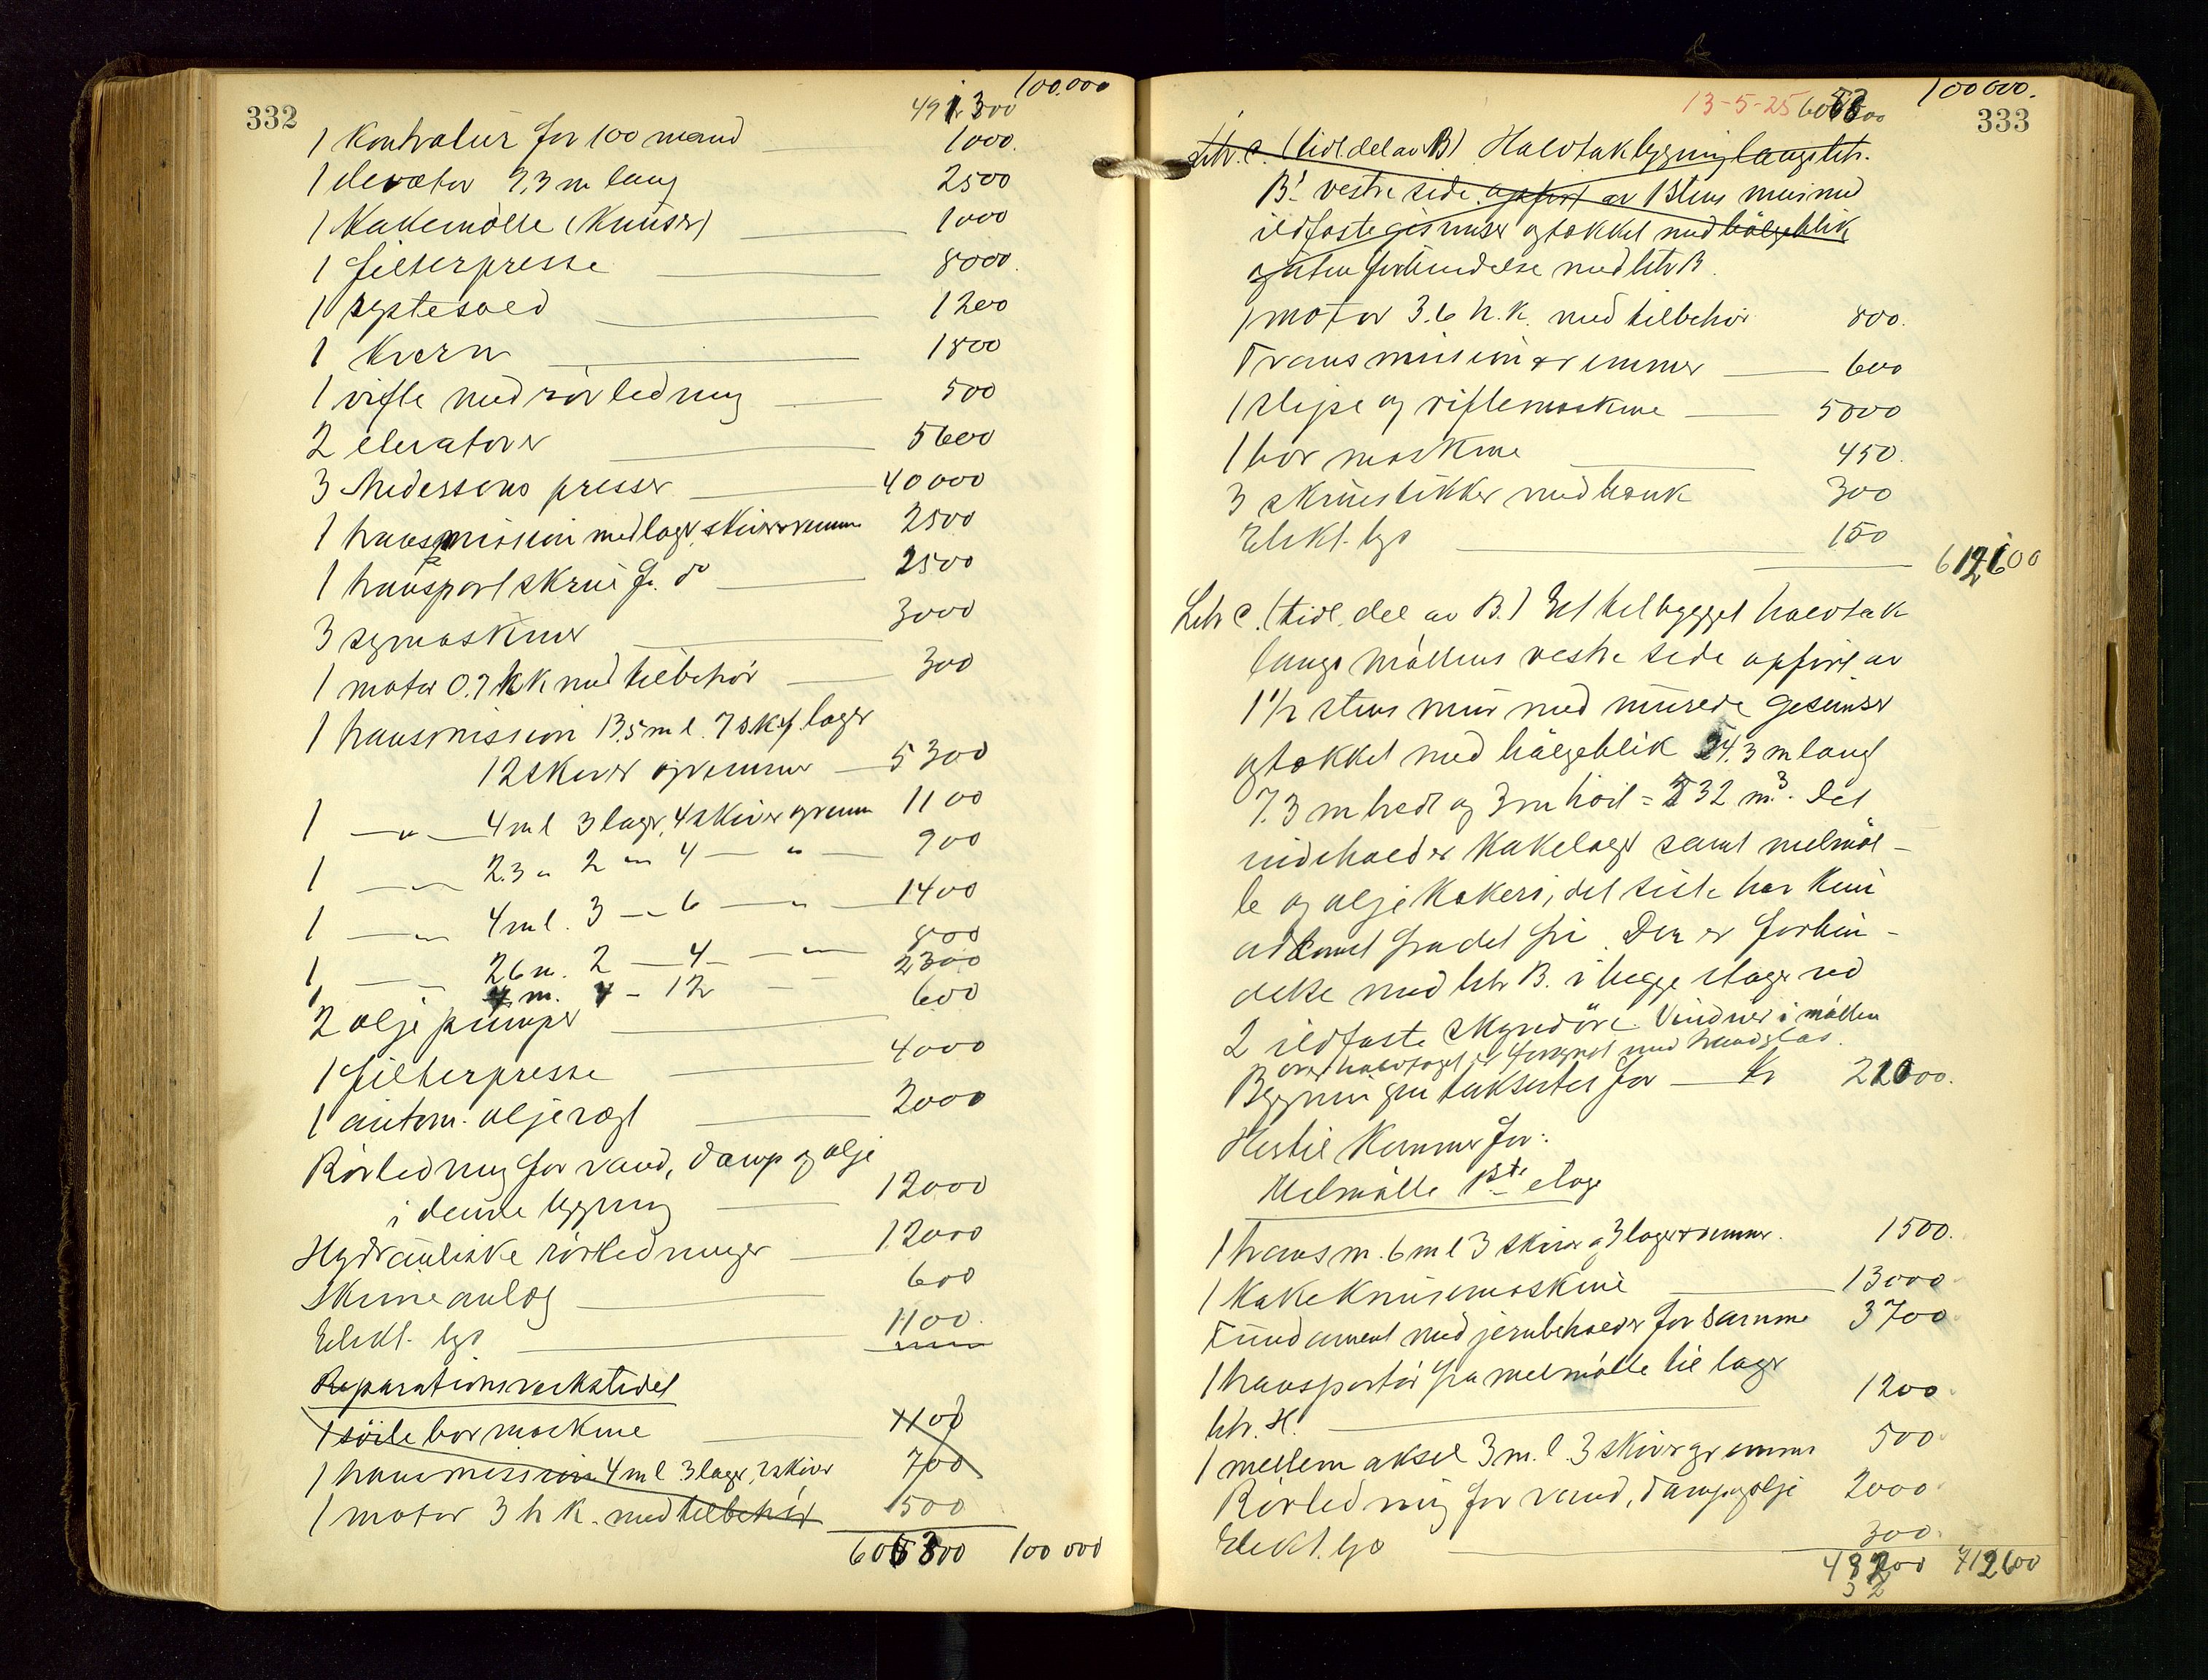 332
100.000
491300
1 kontrolur for 100 mand 1000.
1 elevator 7,3 m lang 2500
1 Kakemølle (Knuser) 1000
1 filterpresse 8000.
1 rystesold 1200
1 Kvern 1800
1 vifte med rørledning 500
2 elevatorer 5600
3 presser 40000
1 transmission med lager, skiver & remme 2500
1 transportskrue f. do 2500
3 symaskiner 3000
1 motor 0.7 hk med tilbehør 300
1 transmission 13,5 m l. 7 lager
12 skiver og remmer 5300
1 —"— 4 m l 3 lager, 4 skiver og remm 1100
1 —"— 2.3 " 2 " 4 — " — 900
1 —"— 4 m l. 3 — " 6 — " — 1400
1 — — 26 m. 2 — 4 — " — 800
1 4 m. 4 - 12 — — 2300
2 olje pumper 600
1 filterpresse 4000
1 autom. oljevægt 2000
Rørledning for vand, damp og olje
i denne bygning 12000
Hydrauliske rørledninger 12000
Skinneanlæg 600
Elekt. lys 1100.
Reparationsverkstedet
1 søile bormaskine 1100
1 transmission 4 m l 3 lager, 2 skiver 700
1 motor 3 h k. med tilbehør 500
605300 100 000
333
13-5-25 100000.
Litr. C. (tidl. del av B) Halvtakbygning langs litr.
B's vestre side opført av 1 Stens mur med
ildfaste gesimser og tækket med bølgeblik
og uten forbindelse med litr B.
1 motor 3.6 h.k. med tilbehør 800.
Transmission & remmer 600
1 slipe og riflemaskine 5000
1 bormaskine 450.
3 skruestikker med bænk 300
Elekt. lys 150
612600
Litr C. (tidl. del av B.) Et tilbygget halvtak
langs møllens vestre side opført av
1½ stens mur med murede gesimser
og tækket med bølgeblik 24.3 m langt
7.3 m bredt og 3 m høit = 532 m³. Det
indeholder kakelager samt melmøl-
le og oljekokeri, det siste har kun
adkomst fra det fri. Den er forbin-
delse med litr B. i begge etager ved
2 ildfaste skyvedøre. Vinduer i møllen
over halvtaget er forsynet med traadglas.
Bygningen taksertes for — Kr 21000.
Hertil kommer for:
Melmølle 1ste etage
1 transm. 6 m l 3 skiver 3 lager & remmer. 1500.
1 Kakeknusemaskine 13000.
Fundament med jernbeholder for samme 3700
1 transportør fra melmølle til lager
litr. H. 1200.
1 mellemaksel 3 m. l. 3 skiver og remmer 500
Rørledning for vand, damp og olje 2000
Elekt. lys 300.
712600